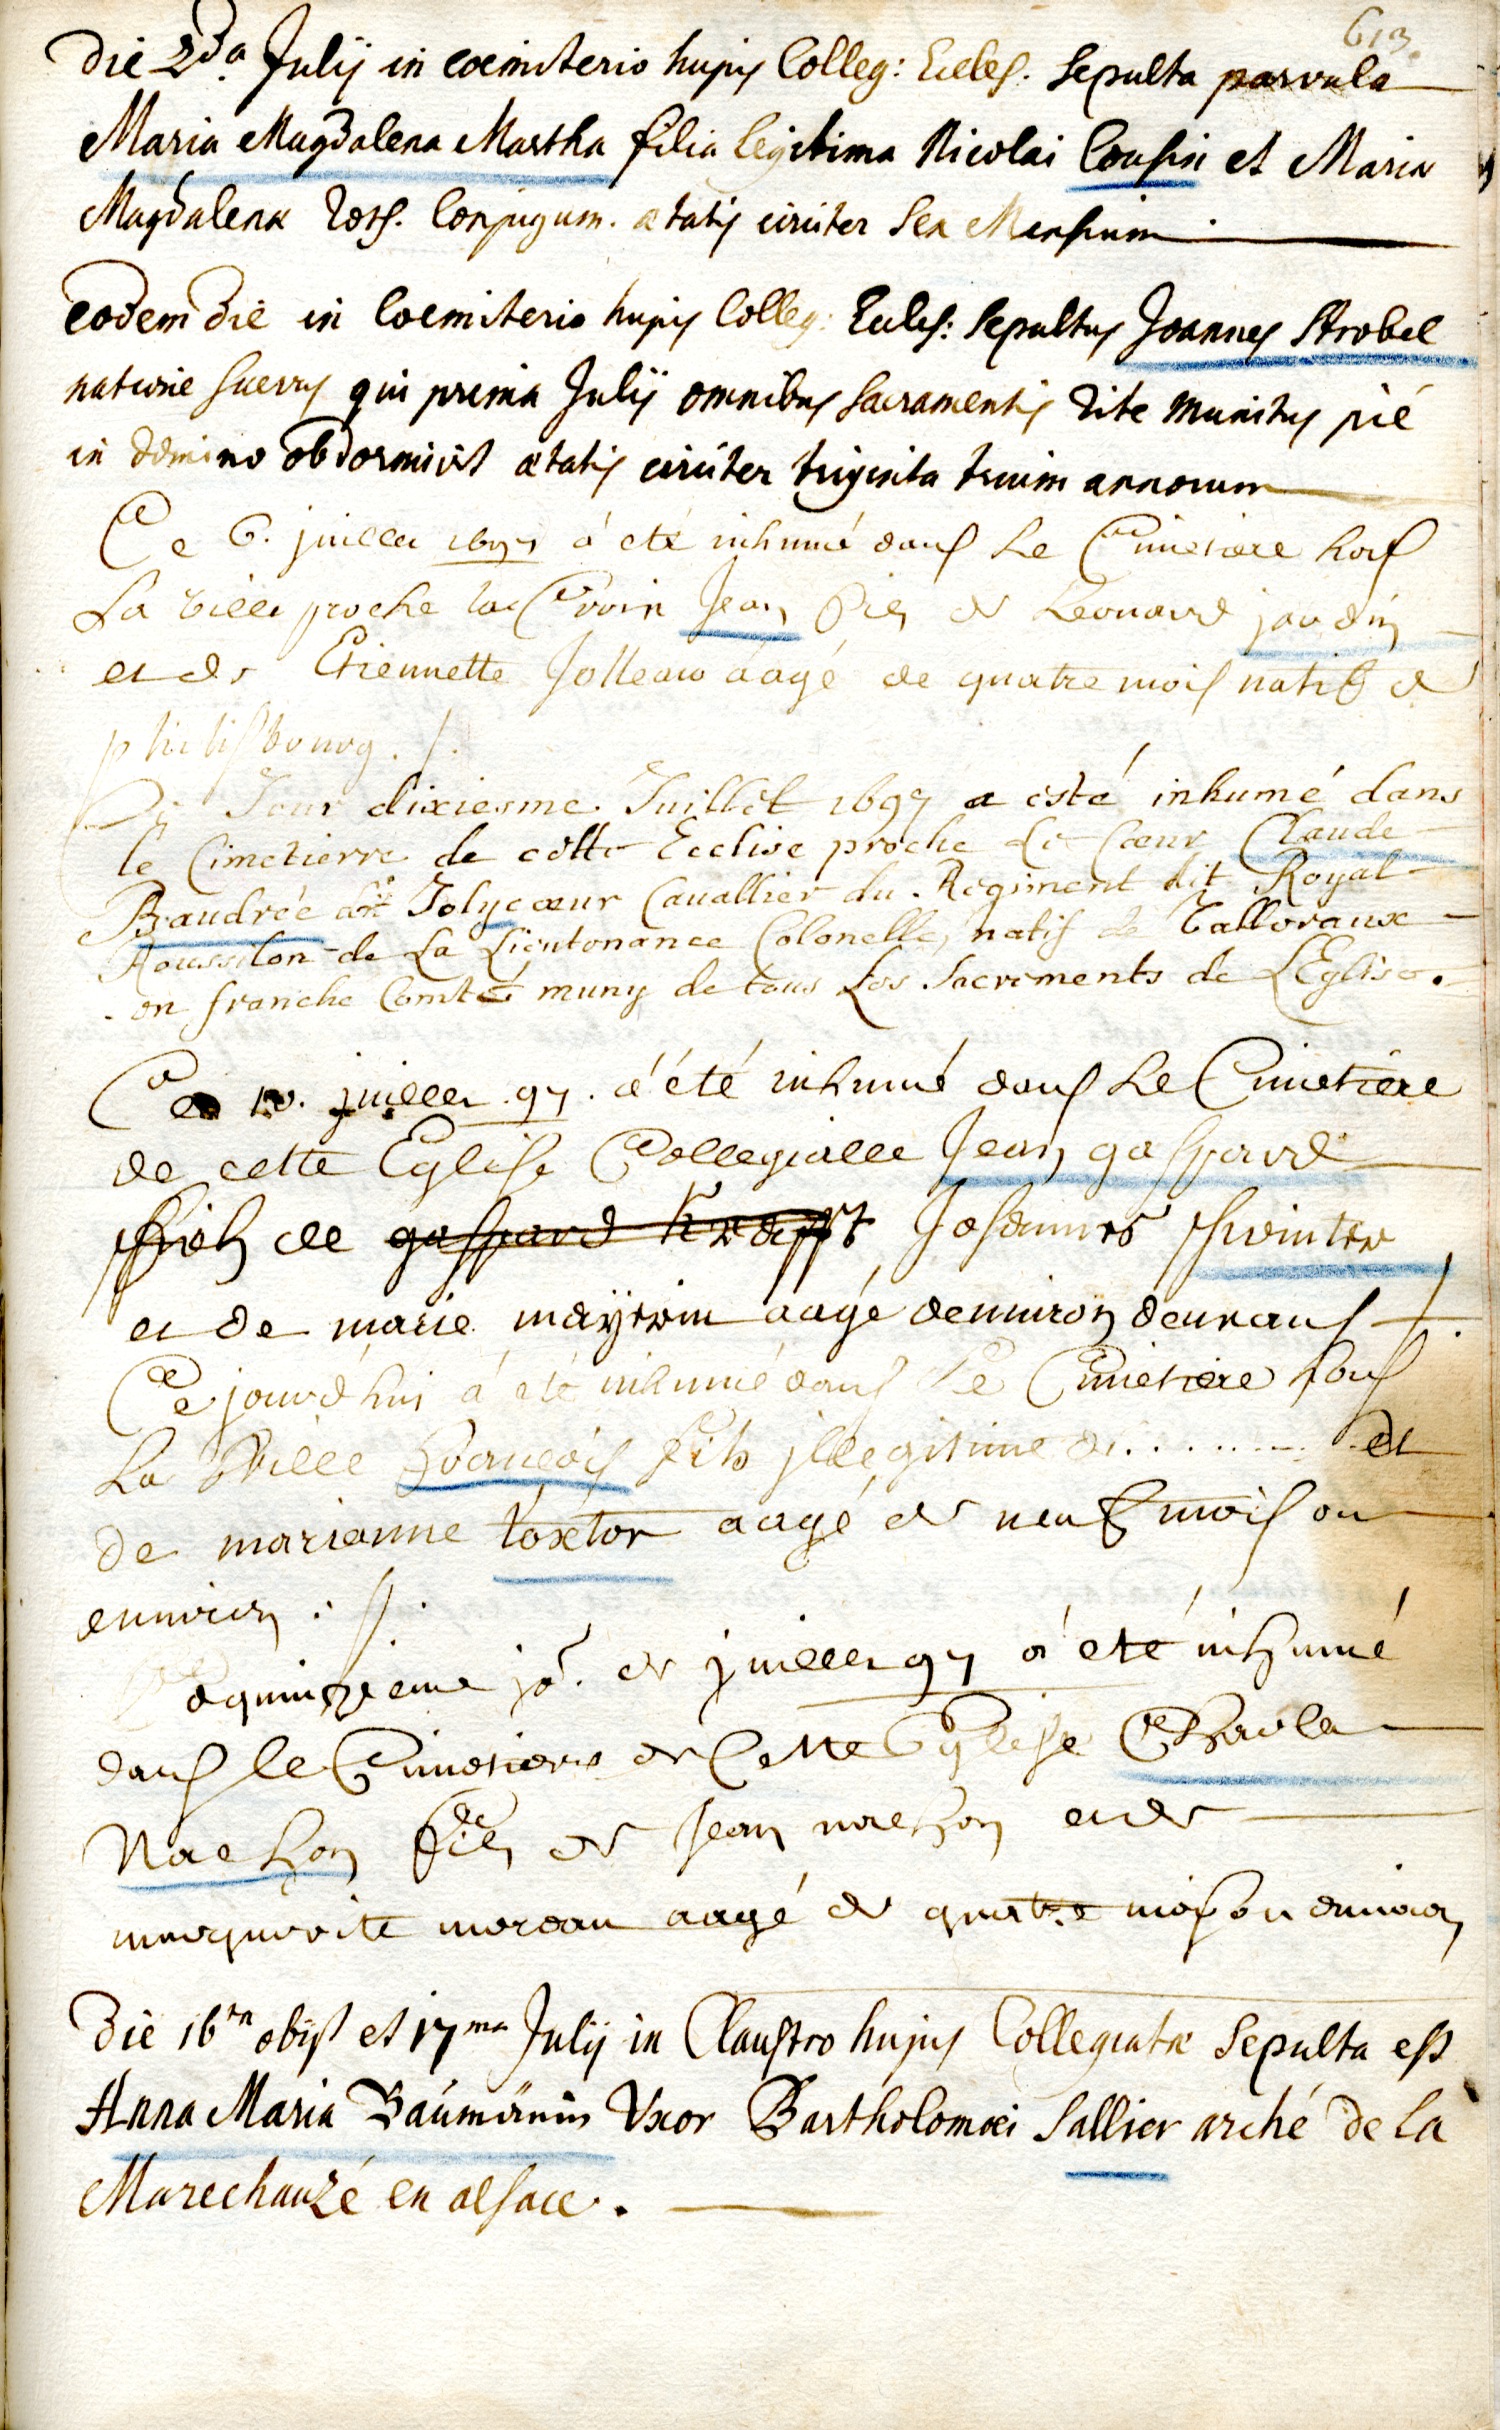 613.
Die 2da Julij in coemiterio hujus Colleg: Eccles. sepulta parvula
Maria Magdalena Martha filia legitima Nicolai Cousin et Maria
Magdalena Conjugum. ætatis circiter sex Mensium
eodem die in Coemiterio hujus Colleg: Eccles: sepultus Joannes Strobel
natione suevus qui prima Julij omnibus sacramentis rite munitus pié
in domino obdormivit ætatis circiter triginta trium annorum
Ce 6. juillet 1697 á eté inhumé dans Le Cimetiere hors
La ville proche la Croix Jean fils de Leonard jardin
et de Etiennette Jolleau áagé de quatre mois natif de
philisbourg ./.
Ce Jour dixiesme Juillet 1697 a esté inhumé dans
le Cimetierre de cette Ecclise proche Le Cœur Claude
Baudrée dit Jolycœur Cauallier du Regiment dit Royal
Roussilon de La Lieutenance Colonelle, natif de
en franche Comté muny de tous Les Sacrements de LEglise.
Ce 10. juillet 97. á été inhumé dans Le Cimetiere
de cette Eglise Collegialle Jean gaspard
fils de gaspard Krafft Johannes
et de marie aagé denuiron deux ans /.
Ce jourdhui á eté inhumé dans Le Cimetiere hors
La Ville francois fils jllegitime de . . . . . . . et
de marianne textor aagé de neuf mois ou
enuiron ./.
Ce quinzieme jor. de juillet 97 á eté inhumé
dans le Cimetiere de Cette Eglise Charle
Nachon fils de Jean nachon et de
marguerite moreau aagé de quatre mois ou enuiron
Die 16ta obijt et 17ma Julij in Claustro hujus Collegiatæ sepulta est
Anna Maria Baúmännin Uxor Bartholomæi Sallier arché de la
Marechauzé en alsace.